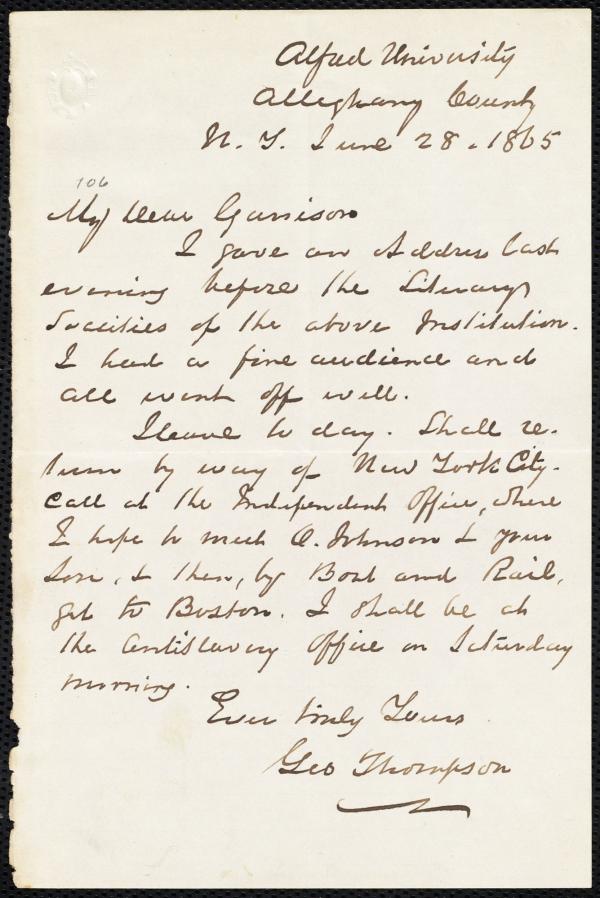 Alfred University
Alleghany County
N. Y. June 28. 1865
106
My Dear Garrison
I gave an Address last
evening before the Literary
Societies of the above Institution.
I had a fine audience and
all went off well.
I leave to day. Shall re-
turn by way of New York City-
Call at the Independent Office, where
I hope to meet O. Johnson & your
Son, & then, by Boat and Rail,
get to Boston. I shall be at
the Antislavery Office on Saturday
morning.
Ever truly Yours
Geo Thompson